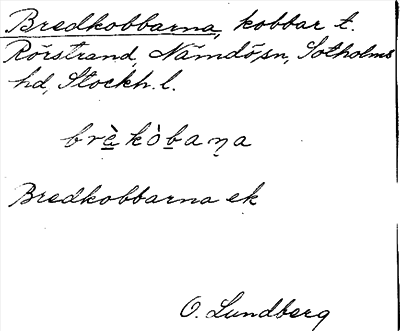 Bredkobbarna, kobbar t.
Rörstrand, Nämdö sn, Sotholms
hd, Stockh. l.
brè̲kòb̲aṉa
Bredkobbarna ek
O. Lundberg